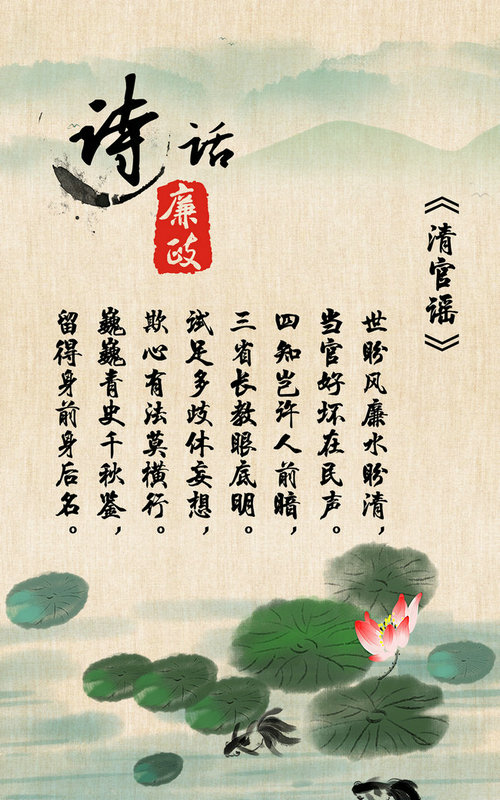 诗话
廉政
《清官谣》
世盼风廉水盼清，
当官好坏在民声。
四知岂许人前暗，
三省长教眼底明。
试足多歧休妄想，
欺心有法莫横行。
巍巍青史千秋鉴，
留得身前身后名。